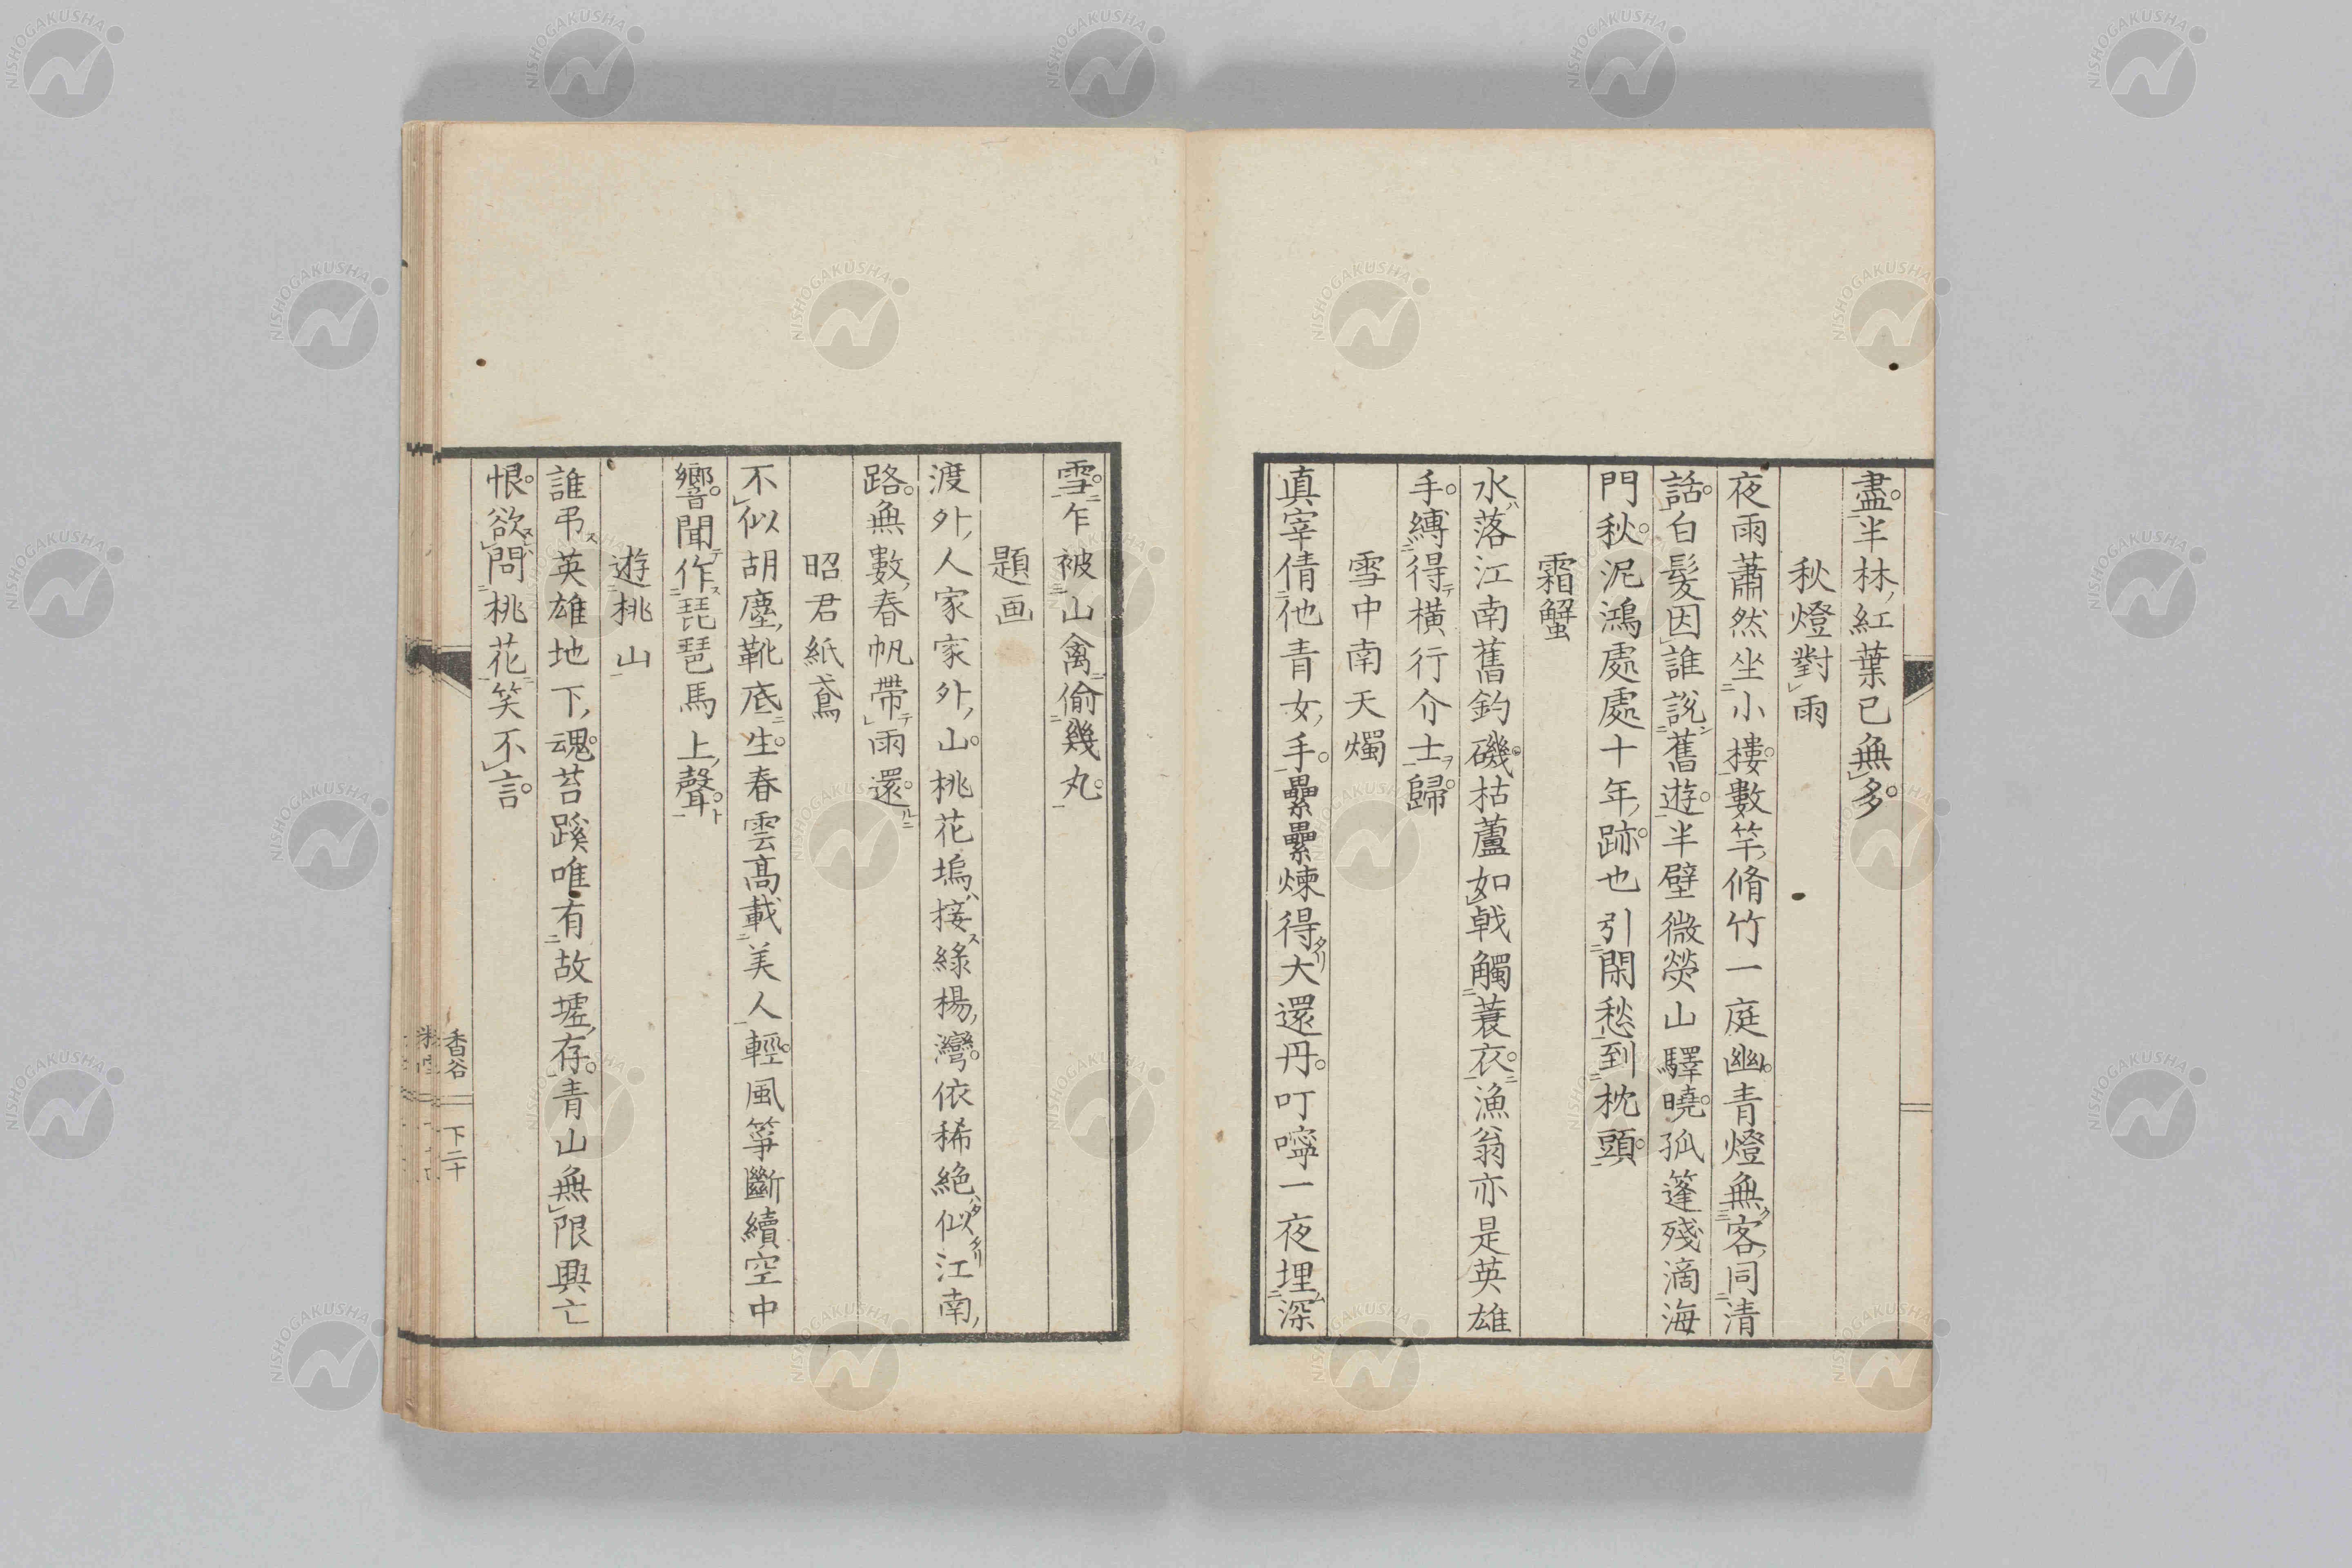 盡。半林、紅葉已無多。
秋燈對雨
夜雨蕭然坐小樓。數竿、脩竹一庭幽。青燈無客、同清
話。白髮因誰說舊遊。半壁微熒山驛曉。孤篷殘滴海
門秋。泥鴻處處十年、跡。也引閑愁到枕頭。
霜蟹
水落江南舊釣磯。枯蘆如戟觸蓑衣。漁翁亦是英雄
手。縛得橫行介士歸。
雪中南天燭
真宰倩他青女、手。纍纍煉得大還丹。叮嚀一夜埋深
雪。乍被山禽偷幾丸。
題画
渡外、人家家外、山。桃花塢接綠楊、灣。依稀絶似江南、
路。無數、春帆帶雨還。
昭君紙鳶
不似胡塵、靴底生。春雲高載美人輕。風箏斷續空中
響。聞作琵琶馬上、聲。
遊桃山
誰弔英雄地下、魂。苔蹊唯有故墟、存。青山無限興亡
恨。欲問桃花笑不言。
香谷 下二十
NISHOGAKUSHA